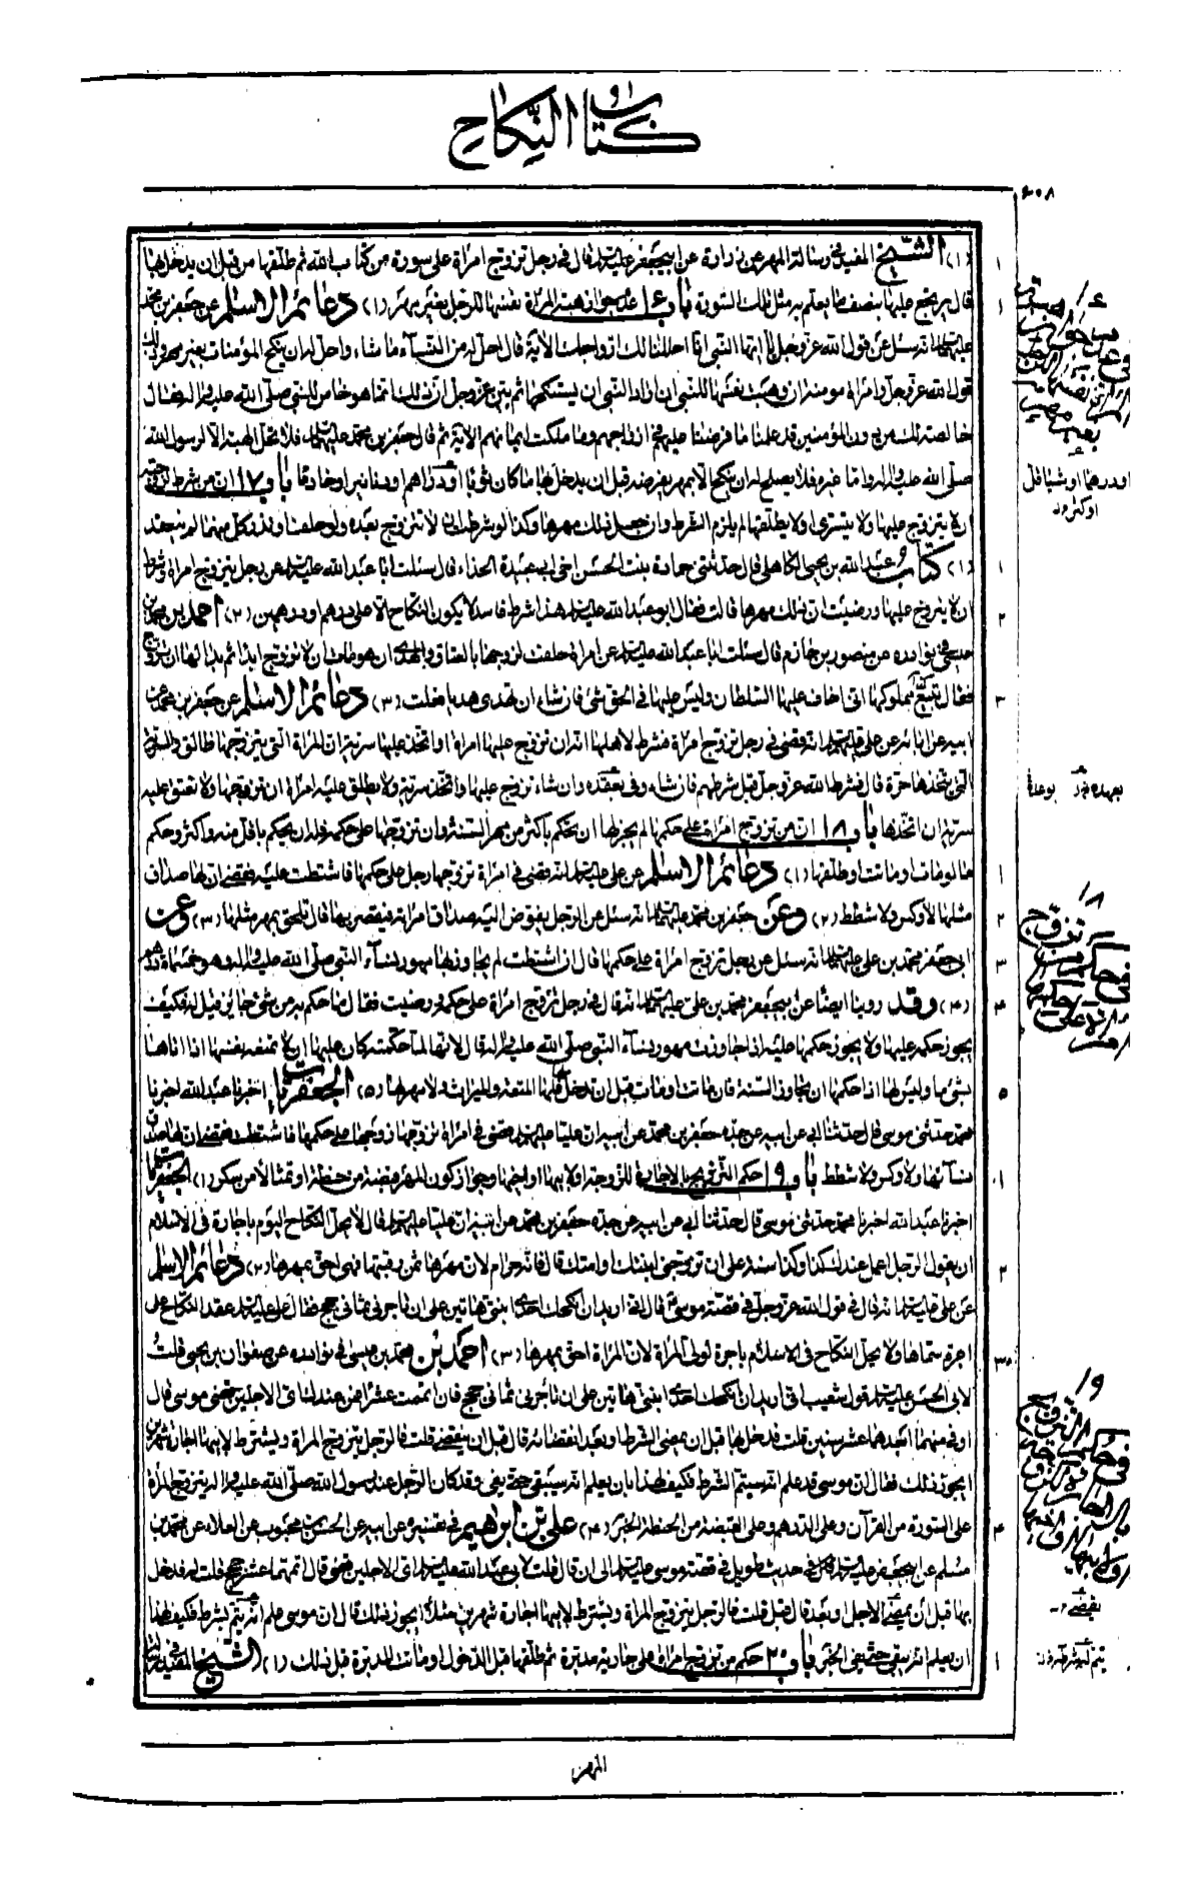 كتاب النكاح
٦٠٨
(١) الشيخ المفيد في رسالة المهر عن زرارة عن ابيجعفر عليه السلم قال في رجل تزوج امرأة على سورة من كتاب الله ثم طلقها من قبل ان يدخل بها
قال يرجع عليها بنصف ما يعلم به مثل تلك السورة باب ١٦ عدم جواز هبة المرأة نفسها للرجل بغير مهر (١) دعائم الاسلام عن جعفر بن محمد
عليهما السلم انه سئل عن قول الله عز وجل يا ايها النبي انا احللنا لك ازواجك الآية قال احل له من النساء ما شاء واحل له ان ينكح المؤمنات بغير مهر وذلك
قول الله عز وجل وامرأة مومنة ان وهبت نفسها للنبي ان اراد النبي ان يستنكحها ثم بين عز وجل ان ذلك انما هو خاص للنبي صلى الله عليه واله فقال
خالصة لك من دون المؤمنين قد علمنا ما فرضنا عليهم في ازواجهم وما ملكت ايمانهم الآية ثم قال جعفر بن محمد عليهما السلم فلا تحل الهبة الا لرسول الله
صلى الله عليه واله واما غيره فلا يصلح له ان ينكح الا بمهر يفرضه قبل ان يدخل بها ما كان ثوبا او دراهم او دنانير او خادما باب ١٧ ان من شرط لزوجته
ان لا يتزوج عليها ولا يتسرى ولا يطلقها لم يلزم الشرط وان جعل ذلك مهرها وكذا لو شرط لها ان لا تتزوج بعده ولو حلفا او نذر كل منهما لم ينعقد
(١) كتاب عبد الله بن يحيى الكاهلي قال حدثتني حمادة بنت الحسن اخي ابي عبيدة الحذاء قال سئلت ابا عبد الله عليه السلم عن رجل تزوج امرأة وشرط
ان لا يتزوج عليها ورضيت ان ذلك مهرها قالت فقال ابو عبد الله عليه السلم هذا شرط فاسد لا يكون النكاح الا على درهم او درهمين (٢) احمد بن محمد بن
عيسى في نوادره عن منصور بن حازم قال سئلت ابا عبد الله عليه السلم عن امرأة حلفت لزوجها بالعتاق والهدي ان هو مات ان لا تزوج ابدا ثم بدا لها ان تزوج
فقال تبيع مملوكها اني اخاف عليها السلطان وليس عليها في الحق شئ فان شاء ان تهدى هديا فعلت (٣) دعائم الاسلام عن جعفر بن محمد عن
ابيه عن ابائه عن علي عليهم السلم انه قضى في رجل تزوج امرأة فشرط لاهلها انه ان تزوج عليها امرأة او اتخذ عليها سرية ان المرأة التي يتزوجها طالق والسرية
التي يتخذها حرة قال فشرط الله عز وجل قبل شرطهم فان شاء وفى بعقده وان شاء تزوج عليها واتخذ سرية ولا يطلق عليه امرأة ان تزوجها ولا تعتق عليه
سرية ان اتخذها باب ١٨ ان من تزوج امرأة على حكمها لم يجز لها ان تحكم باكثر من مهر السنة وان تزوجها على حكمه فله ان يحكم باقل منه واكثر وحكم
ما لو مات او ماتت او طلقها (١) دعائم الاسلام عن علي عليه السلم انه قضى في امرأة تزوجها رجل على حكمها فاشتطت عليه فقضى ان لها صداق
مثلها لا وكس ولا شطط (٢) وعن جعفر بن محمد عليهما السلم انه سئل عن الرجل يفوض اليه صداق امراته فيقصر بها قال تلحق بمهر مثلها (٣) وعن
ابي جعفر محمد بن علي عليهما السلم انه سئل عن رجل تزوج امرأة على حكمها قال ان اشتطت لم يجاوز بها مهور نساء النبي صلى الله عليه واله وهو خمسمائة درهم
(٤) وقد روينا ايضا عن ابيجعفر محمد بن علي عليهما السلم انه قال في رجل تزوج امرأة على حكمه ورضيت فقال ما حكم به من شئ جائز قيل له فكيف
يجوز حكمه عليها ولا يجوز حكمها عليه اذا جاوزت مهور نساء النبي صلى الله عليه واله قال لانها لما حكمته كان عليها ان لا تمنعه نفسها اذا اتاها
بشئ ما وليس لها اذا حكمها ان تجاوز السنة فان ماتت او مات قبل ان يدخل بها فلها المتعة والميراث ولا مهر لها (٥) الجعفريات اخبرنا عبد الله اخبرنا
محمد حدثني موسى قال حدثنا ابي عن ابيه عن جده جعفر بن محمد عن ابيه ان عليا عليه السلم قضى في امرأة تزوجها زوجها على حكمها فاشتطت فقضى ان لها صداق
نسائها ولا وكس ولا شطط باب ١٩ حكم التزويج بالاجارة للزوجة او لابيها او اخيها وجواز كون المهر قبضة من حنطة او تمثالا من سكر (١) الجعفريات
اخبرنا عبد الله اخبرنا محمد حدثني موسى قال حدثنا ابي عن ابيه عن جده جعفر بن محمد عن ابيه ان عليا عليه السلم قال لا يحل النكاح اليوم باجارة في الاسلام
ان يقول الرجل اعمل عندك كذا وكذا سنة على ان تزوجني ابنتك او امتك قال فانه حرام لان مهرها ثمن رقبتها فهي احق بمهرها (٢) دعائم الاسلام
عن علي عليه السلم انه قال في قول الله عز وجل في قصة موسى قال اني اريد ان انكحك احدى ابنتي هاتين على ان تاجرني ثماني حجج فقال علي عليه السلم عقد النكاح على
اجرة سماها ولا يحل النكاح في الاسلام باجرة لولي المرأة لان المرأة احق بمهرها (٣) احمد بن محمد بن عيسى في نوادره عن صفوان بن يحيى قلت
لابي الحسن عليه السلم قول شعيب اني اريد ان انكحك احدى ابنتي هاتين على ان تأجرني ثماني حجج فان اتممت عشرا فمن عندك اي الاجلين قضى موسى قال
اوفى منهما ابعدهما عشر سنين قلت فدخل بها قبل ان يمضى الشرط او بعد انقضائه قال قبل ان ينقضى قلت فالرجل يتزوج المرأة ويشترط لابيها اجارة شهرين
ايجوز ذلك فقال ان موسى قد علم انه سيتم الشرط فكيف لهذا بان يعلم انه سيبقى حتى يفي وقد كان الرجل عند رسول الله صلى الله عليه واله يتزوج المرأة
على السورة من القرآن وعلى الدرهم وعلى القبضة من الحنطة الخبر (٤) علي بن ابراهيم في تفسيره عن ابيه عن الحسن بن محبوب عن العلاء عن محمد بن
مسلم عن ابيجعفر عليه السلم في حديث طويل في قصة موسى عليه السلم الى ان قال قلت لابي عبد الله عليه السلم اي الاجلين قضى قال اتمهما عشر حجج قلت له فدخل
بها قبل ان يمضى الاجل او بعد قال قبل قلت فالرجل يتزوج المرأة ويشترط لابيها اجارة شهرين مثلا ايجوز ذلك قال ان موسى علم انه يتم له شرطه فكيف لهذا
ان يعلم انه يبقى حتى يفي الخبر باب ٢٠ حكم من تزوج امرأة على جارية مدبرة ثم طلقها قبل الدخول او ماتت المدبرة قبل ذلك (١) الشيخ المفيد في رسالة
او درهما او شيئا قل
او كثر
المهر